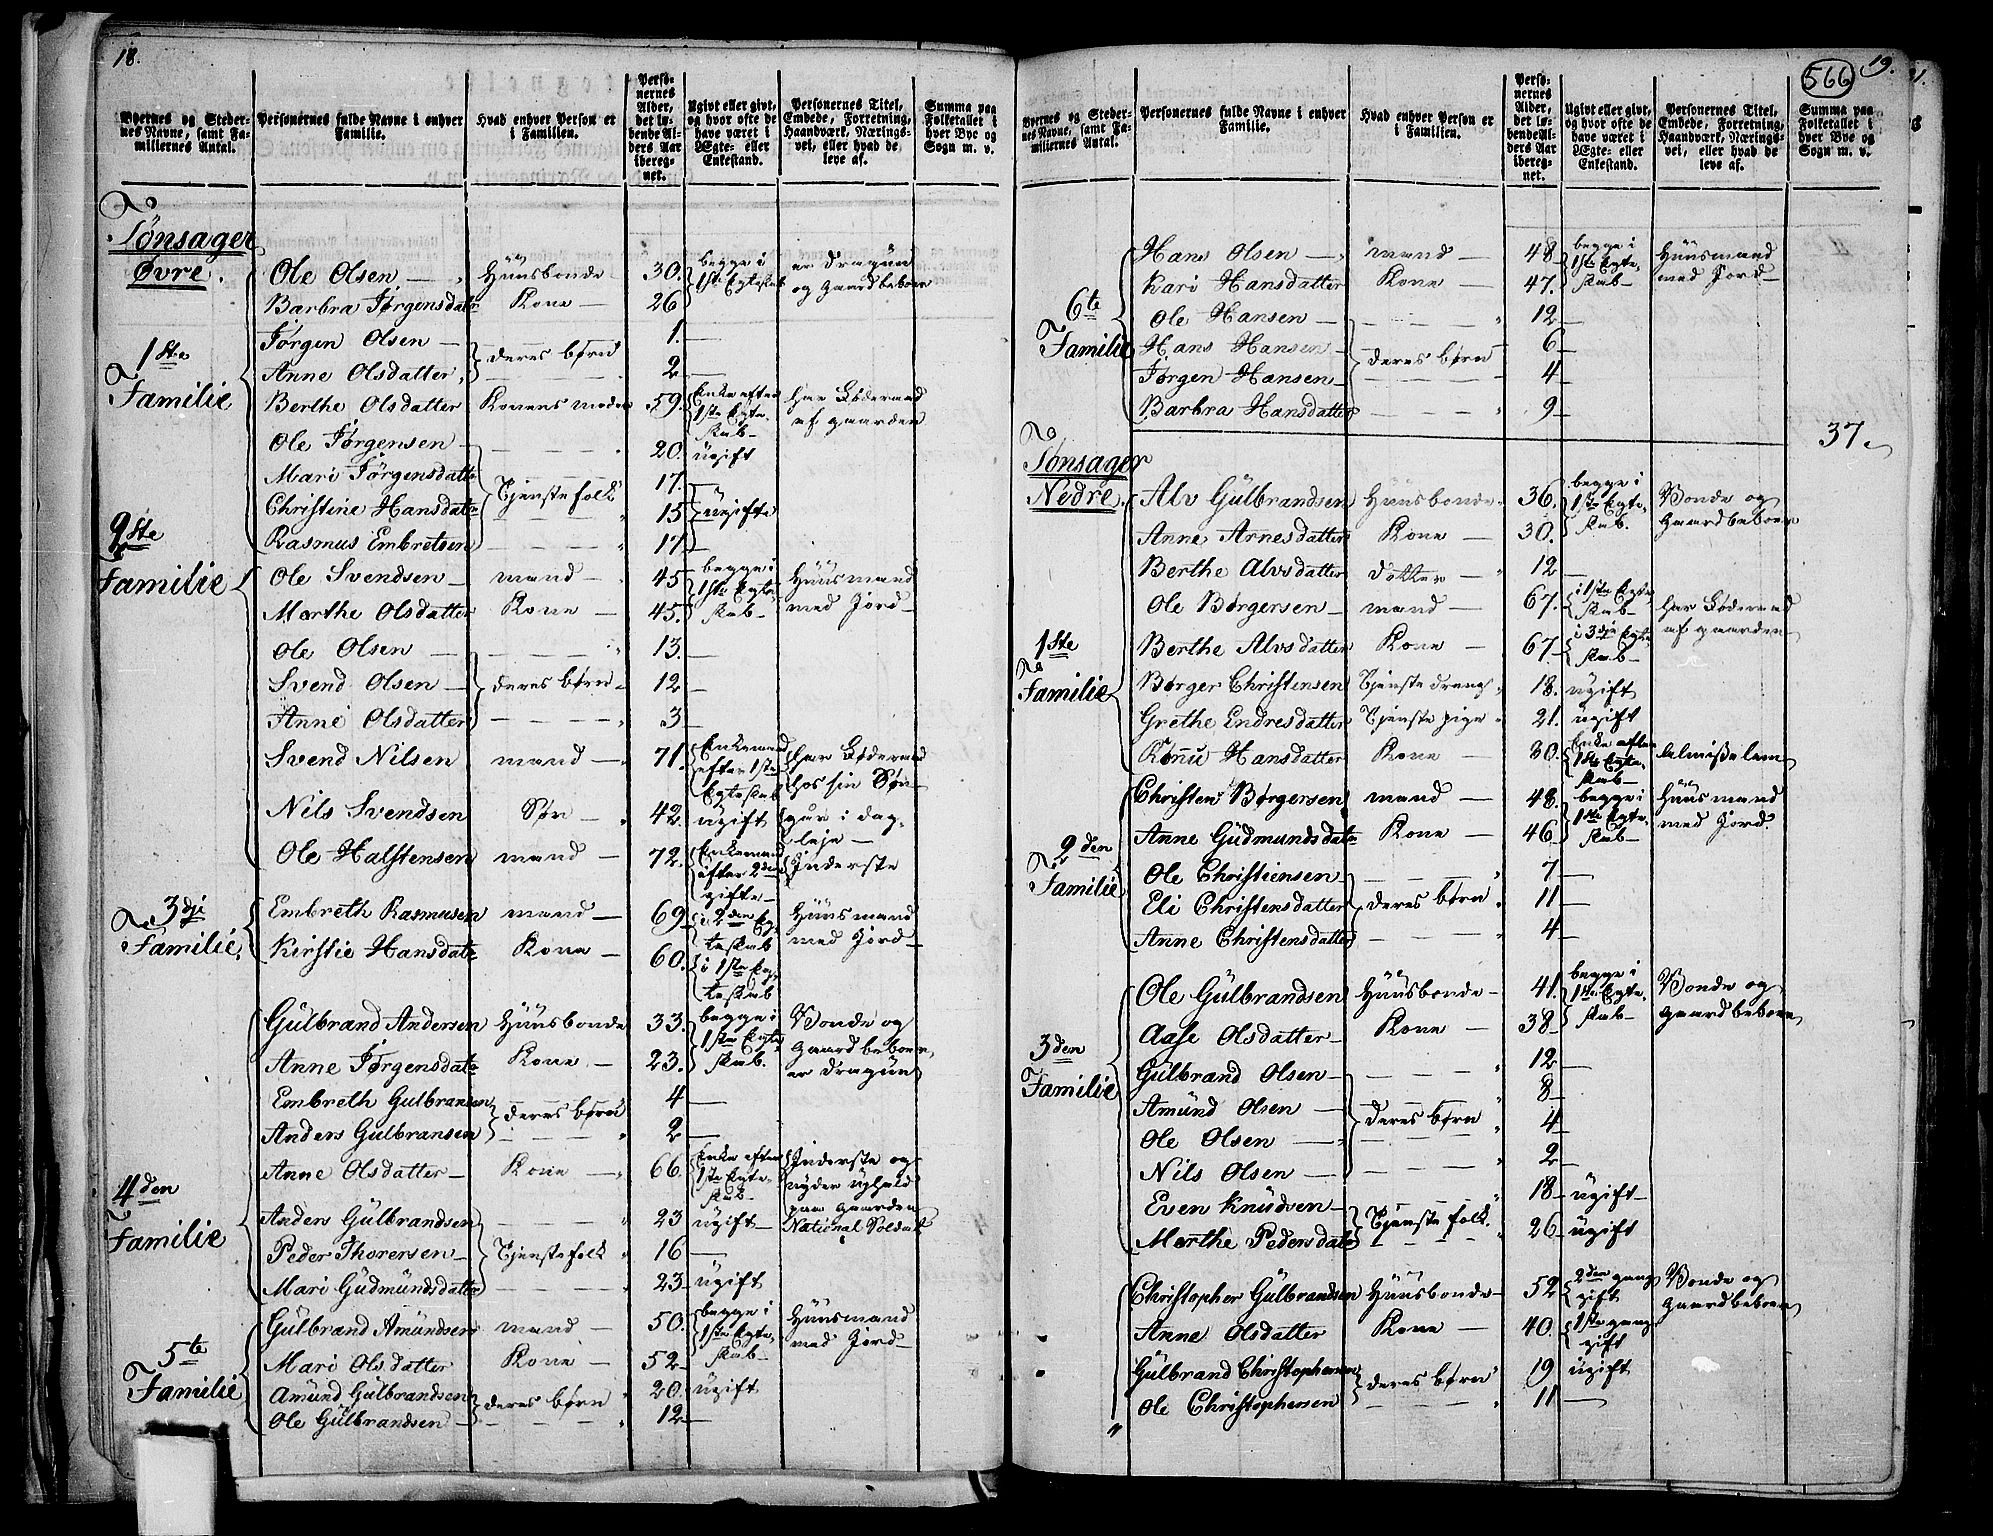 18.
Byernes og Steder-
nes Navne, samt Fa-
miliernes Antal.
Personernes fulde Navne i enhver
Familie.
Hvad enhver Person er
i Familien.
Perso-
nernes
Alder,
det lø-
bende Al-
ders Aar
ibereg-
net.
Ugivt eller givt,
og hvor ofte de
have været i
Ægte- eller
Enkestand.
Personernes Titel,
Embede, Forretning,
Haandværk, Nærings-
vei, eller hvad de
leve af.
Summa paa
Folketallet i
hver Bye og
Sogn m. v.
Tønsager
Øvre.
1ste
Familie
Ole Olsen — Huusbonde 30. begge i 1ste Egteskab er Dragun og Gaardbeboer
Barbra Jørgensdatr Kone — 26
Jørgen Olsen — deres børn 1. —
Anne Olsdatter, — 2 —
Berthe Olsdatter Konens moder 59. Enke efter 1ste Egteskab — har Føderaad af gaarden
Ole Jørgensen — Tjenstefolk 20. ugift
Mari Jørgensdatr 17. ugifte
Christine Hansdatr 15
Rasmus Embretsen 17
2ste
Familie
Ole Svendsen — mand — 45 begge i 1ste Egteskab — Huusmand med Jord —
Marthe Olsdatter Kone — 45.
Ole Olsen — 13. —
Svend Olsen — deres børn 12 —
Anne Olsdatter 3 —
Svend Nilsen mand — 71. Enkemand efter 1ste Egteskab har Føderaad hos sin Søn —
Nils Svendsen Søn — 42. ugift gaar i dagleje —
Ole Halstensen mand — 72. Enkemand efter 2den gifte — Inderste
3dje
Familie
Embreth Rasmusen mand — 69 i 2den Egteskab Huusmand med Jord —
Kirstie Hansdatr Kone — 60. i 1ste Egteskab
4den
Familie
Gulbrand Andersen Huusbonde 33. begge i 1ste Egteskab. Bonde og Gaardbeboer er Dragun
Anne Jørgensdatr Kone — 23.
Embreth Gulbransen deres børn 4 —
Anders Gulbransen 2 —
Anne Olsdatter — Kone — 66. Enke efter 1ste Egteskab — Inderste og nyder ophold paa gaarden
Anders Gulbrandsen Tjenstefolk 23 ugift — National Soldat
Peder Thorersen — 16 —
Mari Gudmundsdatter 23 ugift
5te
Familie
Gulbrand Amundsen mand — 50. begge i 1ste Egteskab — Huusmand med Jord —
Mari Olsdatter Kone — 52
Amund Gulbrandsen deres børn 20. ugift
Ole Gulbrandsen — 12 —
566
19.
Byernes og Steder-
nes Navne, samt Fa-
miliernes Antal.
Personernes fulde Navne i enhver
Familie.
Hvad enhver Person er
i Familien.
Perso-
nernes
Alder,
det lø-
bende Al-
ders Aar
ibereg-
net.
Ugivt eller givt,
og hvor ofte de
have været i
Ægte- eller
Enkestand.
Personernes Titel,
Embede, Forretning,
Haandværk, Nærings-
vei, eller hvad de
leve af.
Summa paa
Folketallet i
hver Bye og
Sogn m. v.
6te
Familie
Hans Olsen — mand — 48 begge i 1ste Egteskab — Huusmand med Jord —
Kari Hansdatter Kone — 47.
Ole Hansen — 12 —
Hans Hansen — deres børn 6 —
Jørgen Hansen — 4 —
Barbra Hansdatter 9 —
37.
Tønsager
Nedre.
1ste
Familie
Alv Gulbrandsen Huusbonde 36. begge i 1ste Egteskab. Bonde og Gaardbeboer
Anne Arnesdatter Kone — 30.
Berthe Alvsdatter dotter — 12 —
Ole Børgersen — mand — 67. i 1ste Egteskab — har Føderaad af gaarden —
Berthe Alvsdatter Kone — 67. i 3die Egteskab —
Børger Christensen Tjenste dreng 18. ugift
Grethe Endresdatter Tjenste pige 21. ugift
Rønu Hansdatter Kone — 30. Enke efter 1ste Egteskab — Almisselem
2den
Familie
Christen Børgersen mand — 48. begge i 1ste Egteskab Huusmand med Jord.
Anne Gudmundsdatr Kone — 46
Ole Christiensen — 7 —
Eli Christensdatter deres børn 11 —
Anne Christensdatter 4 —
3den
Familie
Ole Gulbrandsen Huusbonde — 41. begge i 1ste Egteskab — Bonde og gaardbeboer
Aase Olsdatter — Kone — 38
Gulbrand Olsen — 12 —
Amund Olsen — deres børn 8 —
Ole Olsen — 4 —
Nils Olsen — 2 —
Even Knudsen — Tjenstefolk. 18 ugift —
Marthe Pedersdatr 26 ugift
Christopher Gulbrandsen Huusbonde 52 2den gang gift Bonde og Gaardbeboer
Anne Olsdatter Kone — 40. 1ste gang gift
Gulbrand Christophersen deres børn 19 ugift
Ole Christophersen 11 —